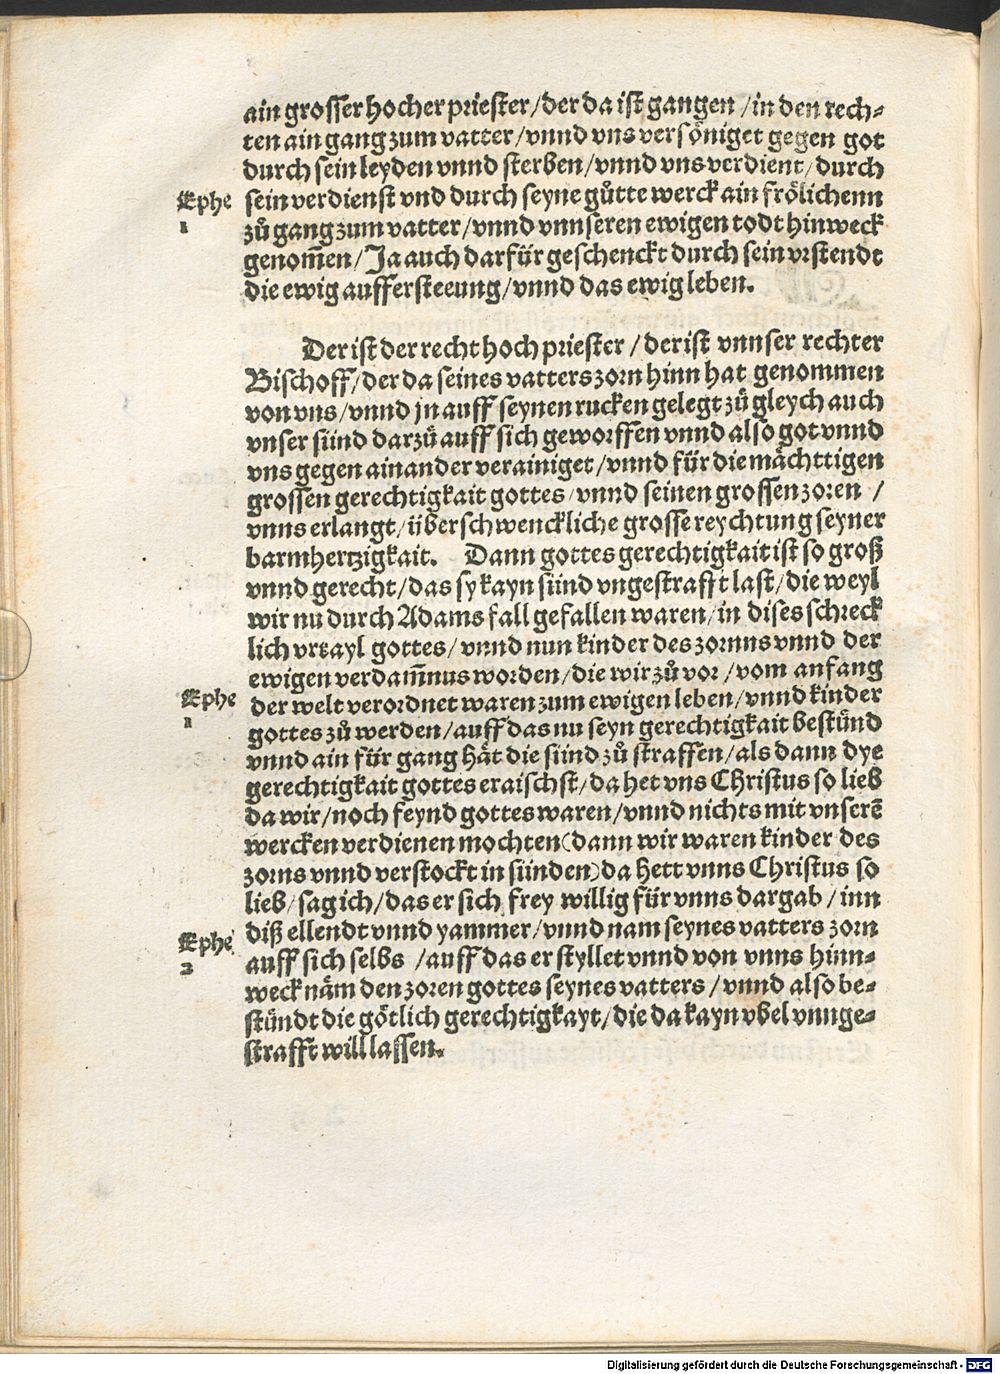 ain grosser hocher priester / der da ist gangen / in den rech-
ten ain gang zum vatter / vnnd vns versöniget gegen got
durch sein leyden vnnd sterben / vnnd vns verdient / durch
Ephe
1
sein verdienst vnd durch seyne gůtte werck ain frölichenn
zů gang zum vatter / vnnd vnnseren ewigen todt hinweck
genom̃en / Ja auch darfür geschenckt durch sein vrstendt
die ewig auffersteeung / vnnd das ewig leben.
Der ist der recht hoch priester / der ist vnnser rechter
Bischoff / der da seines vatters zorn hinn hat genommen
von vns / vnnd jn auff seynen rucken gelegt zů gleych auch
vnser sünd darzů auff sich geworffen vnnd also got vnnd
vns gegen ainander verainiget / vnnd für die mächttigen
grossen gerechtigkait gottes / vnnd seinen grossen zoren /
vnns erlangt / überschwenckliche grosse reychtung seyner
barmhertzigkait. Dann gottes gerechtigkait ist so groß
vnnd gerecht / das sy kayn sünd vngestrafft last / die weyl
wir nu durch Adams fall gefallen waren / in dises schreck
lich vrtayl gottes / vnnd nun kinder des zornns vnnd der
ewigen verdam̃nus worden / die wir zů vor / vom anfang
Ephe
1
der welt verordnet waren zum ewigen leben / vnnd kinder
gottes zů werden / auff das nu seyn gerechtigkait bestünd
vnnd ain für gang hät die sünd zů straffen / als dann dye
gerechtigkait gottes eraischst / da het vns Christus so lieb
da wir / noch feynd gottes waren / vnnd nichts mit vnserē
wercken verdienen mochten (dann wir waren kinder des
zorns vnnd verstockt in sünden) da hett vnns Christus so
lieb / sag ich / das er sich frey willig für vnns dargab / inn
Ephe
2
diß ellendt vnnd yammer / vnnd nam seynes vatters zorn
auff sich selbs / auff das er styllet vnnd von vnns hinn-
weck näm den zoren gottes seynes vatters / vnnd also be-
stündt die götlich gerechtigkayt / die da kayn vbel vnnge-
strafft will lassen.
Digitalisierung gefördert durch die Deutsche Forschungsgemeinschaft - DFG